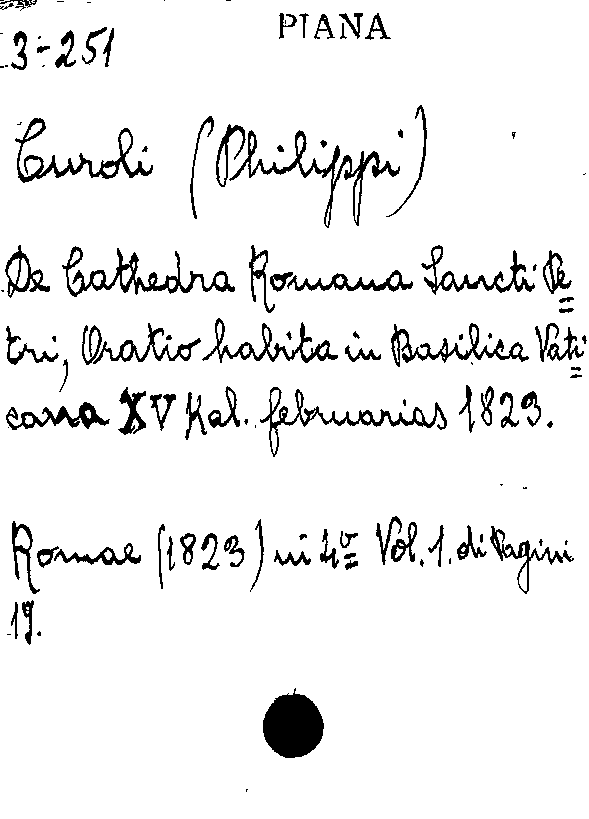 PIANA
3=251
Curoli (Philippi)
De Cathedra Romana Sancti Pe=
tri, Oratio habita in Basilica Vati=
cana XV Kal. februarias 1823.
Romae (1823) in 4º Vol. 1. di Pagini
19.